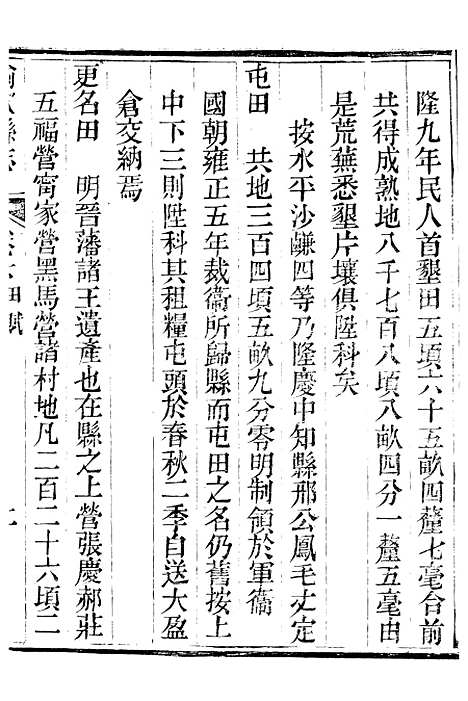 隆九年民人首墾田五頃六十五畝四釐七毫合前
共得成熟地八千七百八頃八畝四分一釐五毫由
是荒蕪悉墾片壤俱陞科矣
按水平沙鹻四等乃隆慶中知縣邢公鳳毛丈定
屯田　共地三百四頃五畝九分零明制領於軍衞
國朝雍正五年裁衞所歸縣而屯田之名仍舊按上
中下三則陞科其租糧屯頭於春秋二季自送大盈
倉交納焉
更名田　明晉藩諸王遺產也在縣之上營張慶郝莊
五福營甯家營黑馬營諸村地凡二百二十六頃二
田賦